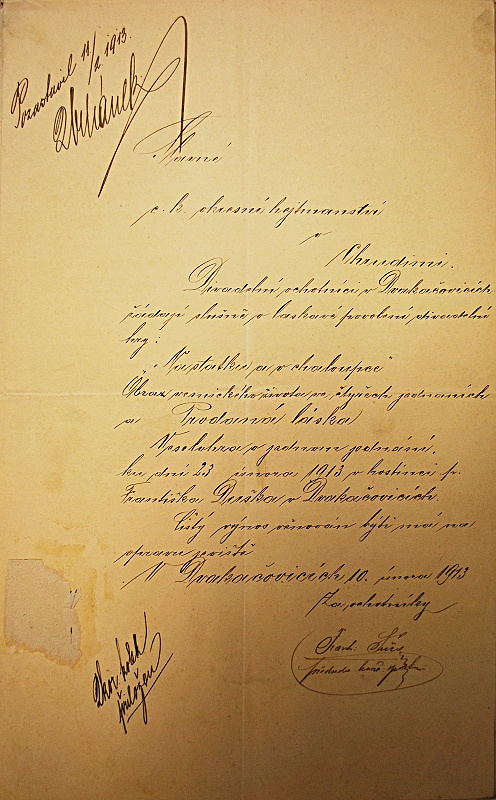 Pozastavil 11/2 1913.
Slavné
c. k. okresní hejtmanství
v
Chrudimi.
Divadelní ochotníci v Dvakačovicích
žádají slušně o laskavé povolení divadelní
hry:
"Na statku a v chaloupce"
Obraz vesnického života ve čtyřech jednáních
a Prodaná láska
Veselohra o jednom jednání.
ku dni 23 února 1913 v hostinci p.
Františka Duška v Dvakačovicích.
Čistý výnos věnován býti má na
opravu jeviště
V Dvakačovicích 10. února 1913
Za ochotníky
Frant.
předseda
kolek
přiložen